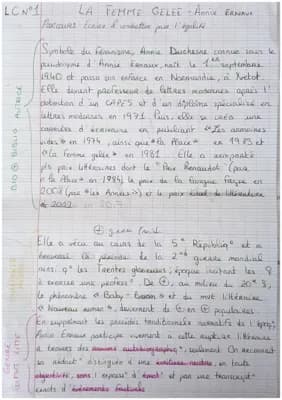 LC N°1 LA FEMME GELEE - Annie ERNAUX
Parcours - Ecrire et combattre pour l'égalité
Symbole du féminisme, Annie Duchesne connue sous le
pseudonyme d'Annie Ernaux, naît le 1er septembre
1940 et passe son enfance en Normandie, à Yvetot.
Elle devient professeur de lettres modernes après l'
obtention d'un CAPES et d'un diplôme spécialisé en
lettres modernes en 1971. Puis, elle se créa une
carrière d'écrivaine en publiant "Les armoires
vides" en 1974, ainsi que "la Place" en 1983 et
"la femme gelée" en 1981. Elle a remporté
plr prix littéraires dont le "Prix Renaudot" (pour
"la Place" en 1984), le prix de la langue frçse en
2008 (pour "les Années") et le prix
BIO & BIBLIO AUTRICE
Elle a vécu au cours de la 5e Républiq° et a
traversé la période de la 2nde guerre mondial
ainsi q° les Trentes glorieuses, époque incitant les
à exercer une profess°. De ⊕, au milieu du 20e S,
le phénomène "Baby-Boom" et du mvt littéraire
"Nouveau roman", deviennent de ⊕ en ⊕ populaires.
En supprimant les procédés traditionnels normatifs de l'épopq,
Annie Ernaux participe vivement à cette rupture littéraire
à travers des romans autobiographiq°, seulement on reconnait
sa rédact° distinguée d'une écriture neutre, en toute
objectivité, sans l'express° d'émot° et par une transcript°
exacte d'événements factuels
GENRE